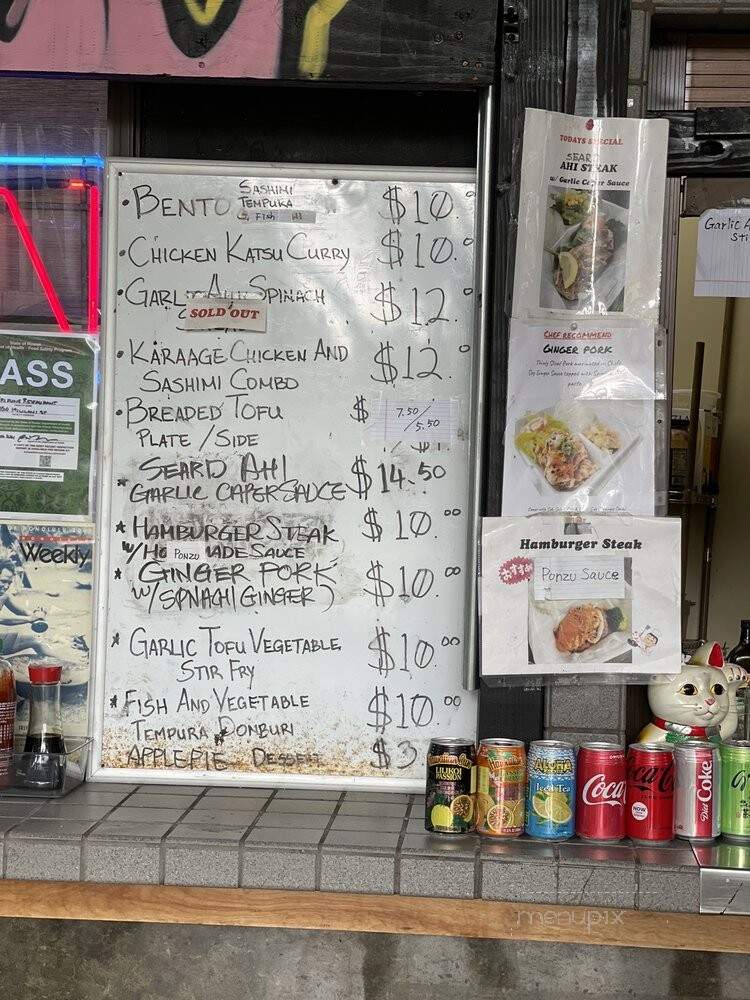 • BENTO SASHIMI $10.00
TEMPURA
• CHICKEN KATSU CURRY $10.0
• GARLIC AHI SPINACH $12.0
SOLD OUT
• KARAAGE CHICKEN AND $12.0
SASHIMI COMBO
• BREADED TOFU $ 7.50/5.50
PLATE / SIDE
* SEARD AHI $14.50
GARLIC CAPER SAUCE
* HAMBURGER STEAK $10.00
W/ PONZU SAUCE
* GINGER PORK $10.00
W/ SPINACH (GINGER)
* GARLIC TOFU VEGETABLE $10.00
STIR FRY
* FISH AND VEGETABLE $10.00
TEMPURA DONBURI
APPLEPIE DESSERT $3.
TODAYS SPECIAL
SEARD
AHI STEAK
w/ Garlic Caper Sauce
CHEF RECOMMEND
GINGER PORK
Hamburger Steak
おすすめ
Ponzu Sauce
Garlic
ASS
Weekly
LILIKOI
PASSION
ALOHA
Iced Tea
Coca-Cola
Coca-Cola
Diet
Coke
menupix